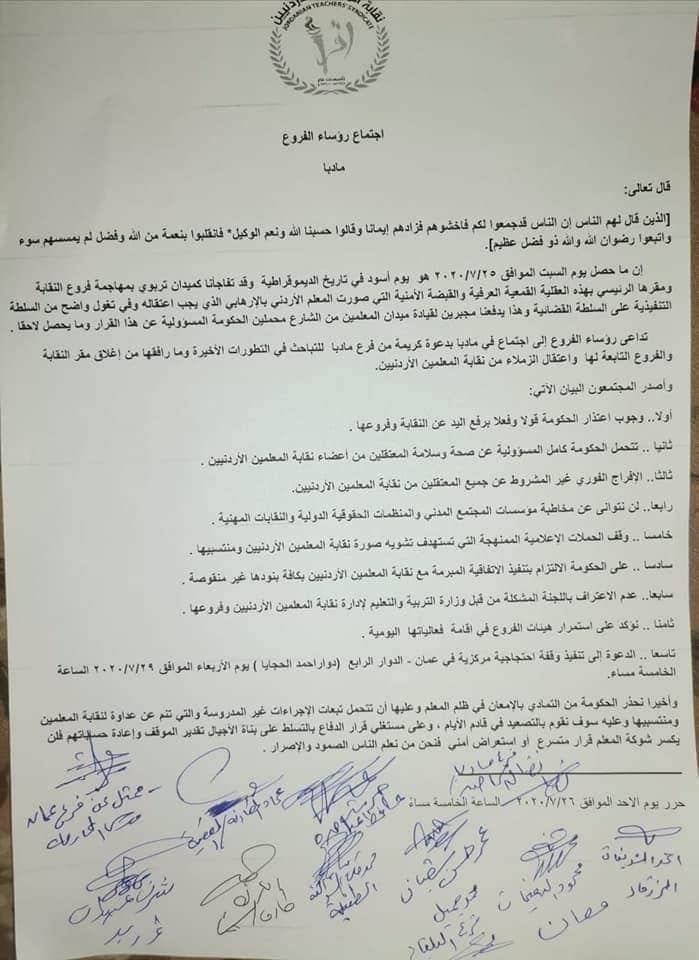 نقابة
JORDANIAN TEACHERS' SYNDICATE
اقرأ
اجتماع رؤساء الفروع
مادبا
قال تعالى:
[الذين قال لهم الناس إن الناس قدجمعوا لكم فاخشوهم فزادهم إيمانا وقالوا حسبنا الله ونعم الوكيل* فانقلبوا بنعمة من الله وفضل لم يمسسهم سوء
واتبعوا رضوان الله والله ذو فضل عظيم].
إن ما حصل يوم السبت الموافق ٢٠٢٠/٧/٢٥ هو يوم أسود في تاريخ الديموقراطية وقد تفاجأنا كميدان تربوي بمهاجمة فروع النقابة
ومقرها الرئيسي بهذه العقلية القمعية العرفية والقبضة الأمنية التي صورت المعلم الأردني بالإرهابي الذي يجب اعتقاله وفي تغول واضح من السلطة
التنفيذية على السلطة القضائية وهذا يدفعنا مجبرين لقيادة ميدان المعلمين من الشارع محملين الحكومة المسؤولية عن هذا القرار وما يحصل لاحقا .
تداعى رؤساء الفروع إلى اجتماع في مادبا بدعوة كريمة من فرع مادبا للتباحث في التطورات الأخيرة وما رافقها من إغلاق مقر النقابة
والفروع التابعة لها واعتقال الزملاء من نقابة المعلمين الأردنيين.
وأصدر المجتمعون البيان الآتي:
أولا.. وجوب اعتذار الحكومة قولا وفعلا برفع اليد عن النقابة وفروعها .
ثانيا .. تتحمل الحكومة كامل المسؤولية عن صحة وسلامة المعتقلين من أعضاء نقابة المعلمين الأردنيين .
ثالثا.. الإفراج الفوري غير المشروط عن جميع المعتقلين من نقابة المعلمين الأردنيين.
رابعا.. لن نتوانى عن مخاطبة مؤسسات المجتمع المدني والمنظمات الحقوقية الدولية والنقابات المهنية .
خامسا .. وقف الحملات الإعلامية الممنهجة التي تستهدف تشويه صورة نقابة المعلمين الأردنيين ومنتسبيها .
سادسا .. على الحكومة الالتزام بتنفيذ الاتفاقية المبرمة مع نقابة المعلمين الأردنيين بكافة بنودها غير منقوصة .
سابعا.. عدم الاعتراف باللجنة المشكلة من قبل وزارة التربية والتعليم لإدارة نقابة المعلمين الأردنيين وفروعها .
ثامنا .. نؤكد على استمرار هيئات الفروع في اقامة فعالياتها اليومية .
تاسعا .. الدعوة إلى تنفيذ وقفة احتجاجية مركزية في عمان - الدوار الرابع (دواراحمد الحجايا ) يوم الأربعاء الموافق ٢٠٢٠/٧/٢٩ الساعة
الخامسة مساء.
وأخيرا نحذر الحكومة من التمادي بالإمعان في ظلم المعلم وعليها أن تتحمل تبعات الإجراءات غير المدروسة والتي تنم عن عداوة لنقابة المعلمين
ومنتسبيها وعليه سوف نقوم بالتصعيد في قادم الأيام ، وعلى مستغلي قرار الدفاع بالتسلط على بناة الأجيال تقدير الموقف وإعادة حساباتهم فلن
يكسر شوكة المعلم قرار متسرع أو استعراض أمني فنحن من نعلم الناس الصمود والإصرار .
ممثل عن فرع عمان
حرر يوم الاحد الموافق ٢٠٢٠/٧/٢٦ الساعة الخامسة مساء
الطفيلة
معان